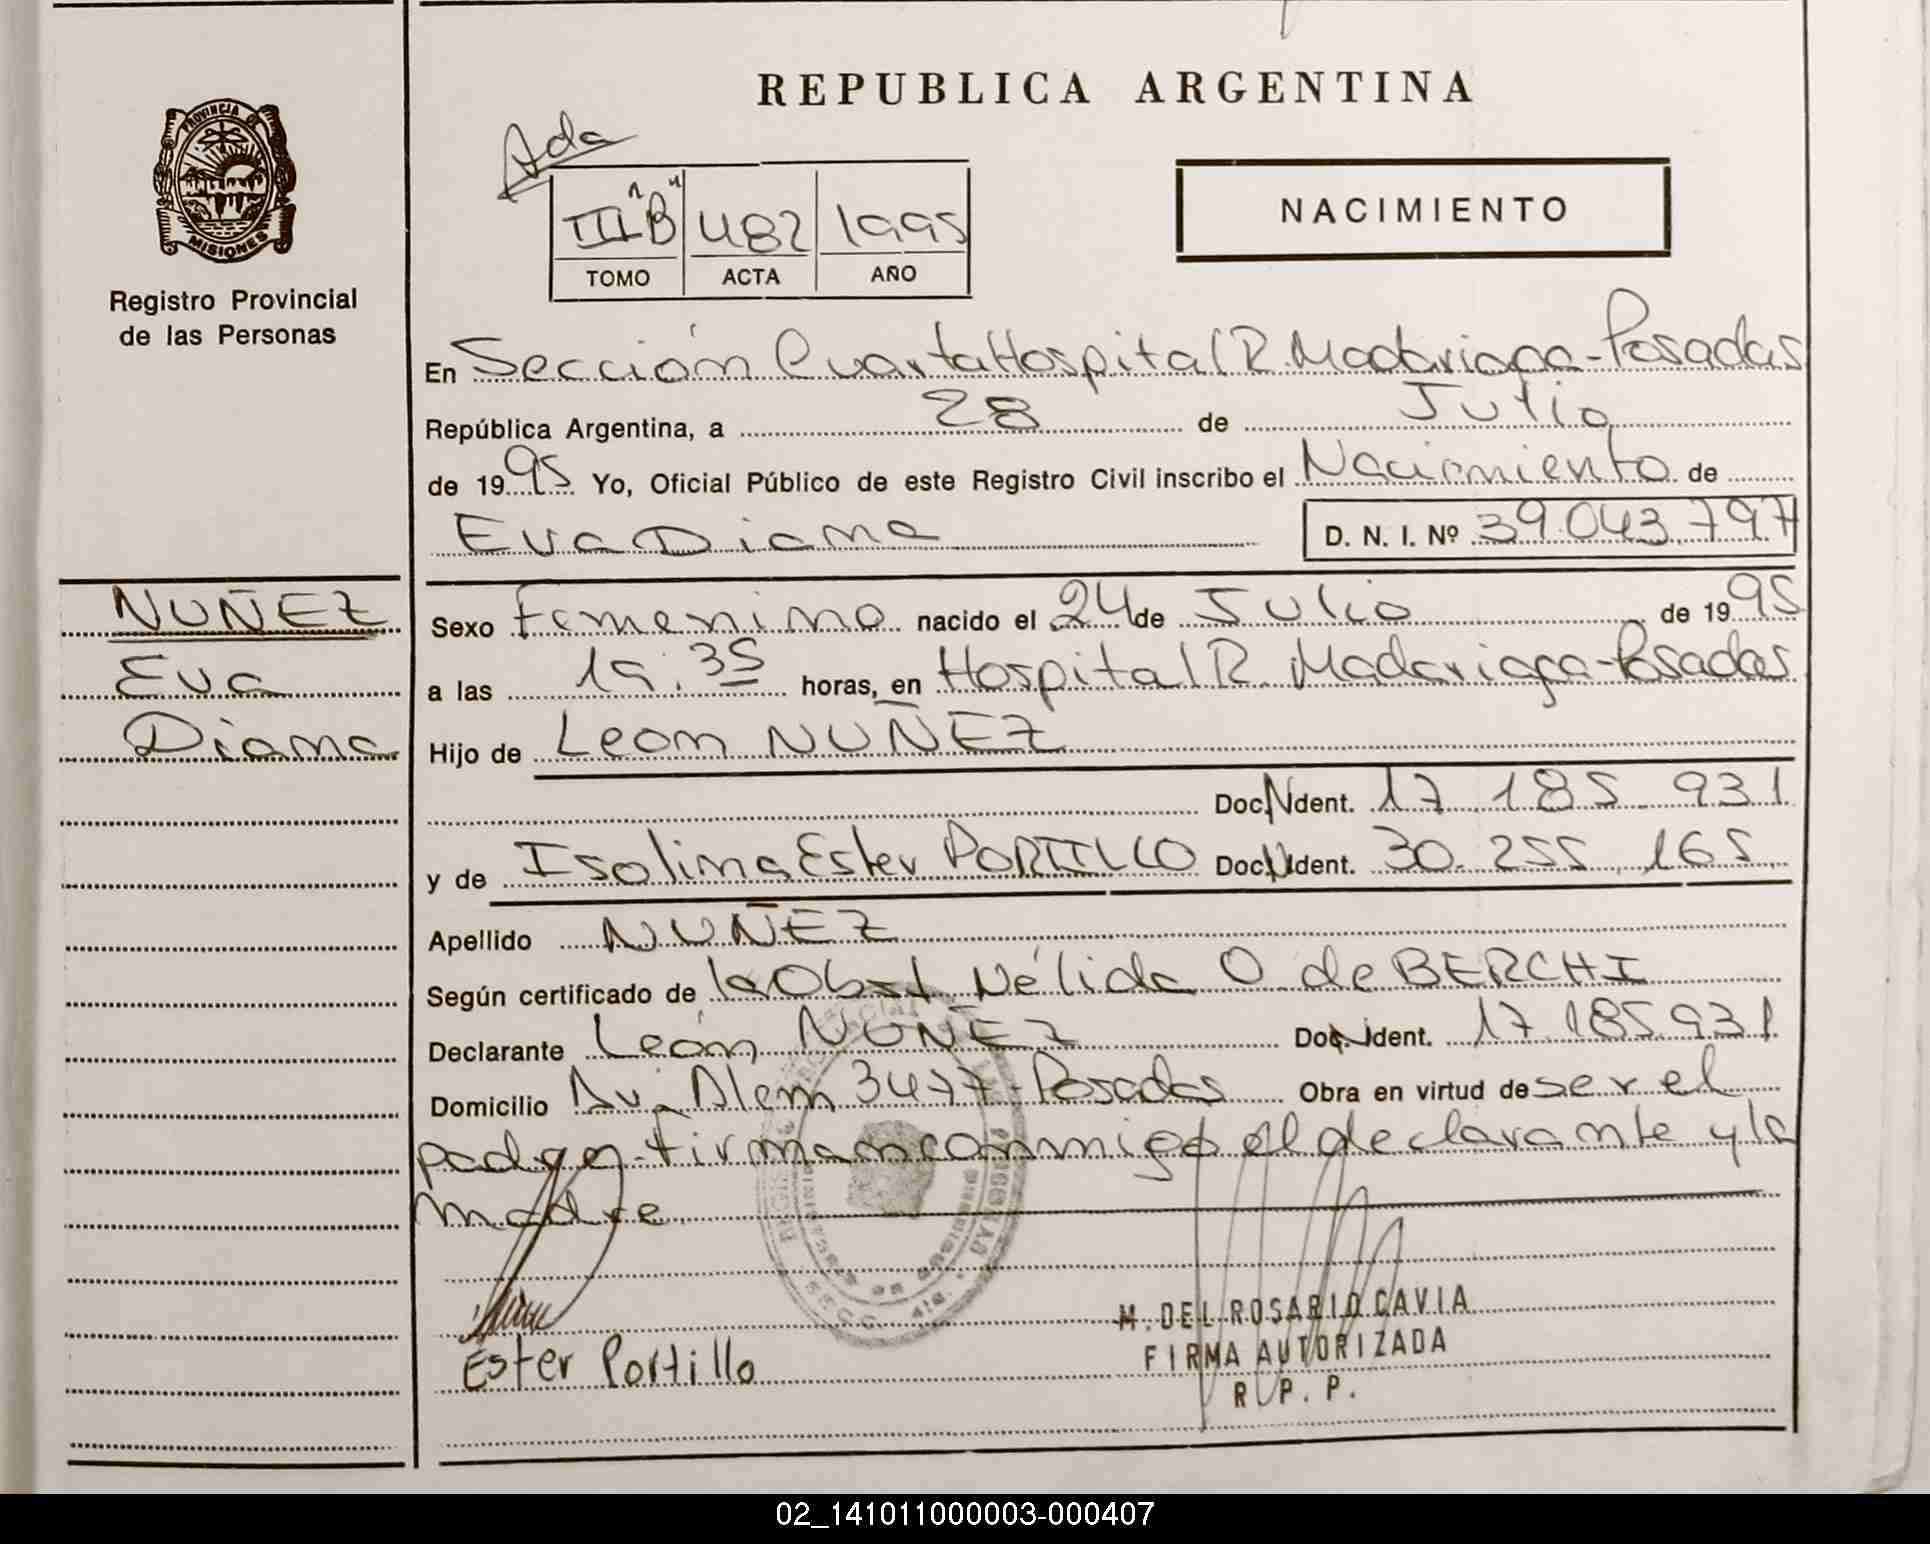 REPUBLICA ARGENTINA
PROVINCIA DE
MISIONES
Registro Provincial
de las Personas
Ada
III "B" 482 1995
TOMO ACTA AÑO
NACIMIENTO
En Sección Cuarta Hospital R. Madariaga - Posadas
República Argentina, a 28 de Julio
de 1995 Yo, Oficial Público de este Registro Civil inscribo el Nacimiento de
Eva Diana D. N. I. Nº 39.043.797
NUÑEZ
Eva
Diana
Sexo Femenino nacido el 24 de Julio de 1995
a las 19:35 horas, en Hospital R. Madariaga - Posadas
Hijo de Leon NUÑEZ
Doc. N Ident. 17.185.931
y de Isolina Ester PORTILLO Doc. N Ident. 30.255.165
Apellido NUÑEZ
Según certificado de la Obst. Nélida O de BERCHI
Declarante León NUÑEZ Doc. N Ident. 17.185.931
Domicilio Av. Alem 3477 - Posadas Obra en virtud de ser el
padre - firman conmigo el declarante y la
madre
M. DEL ROSARIO CAVIA
FIRMA AUTORIZADA
R. P. P.
Ester Portillo
02_141011000003-000407